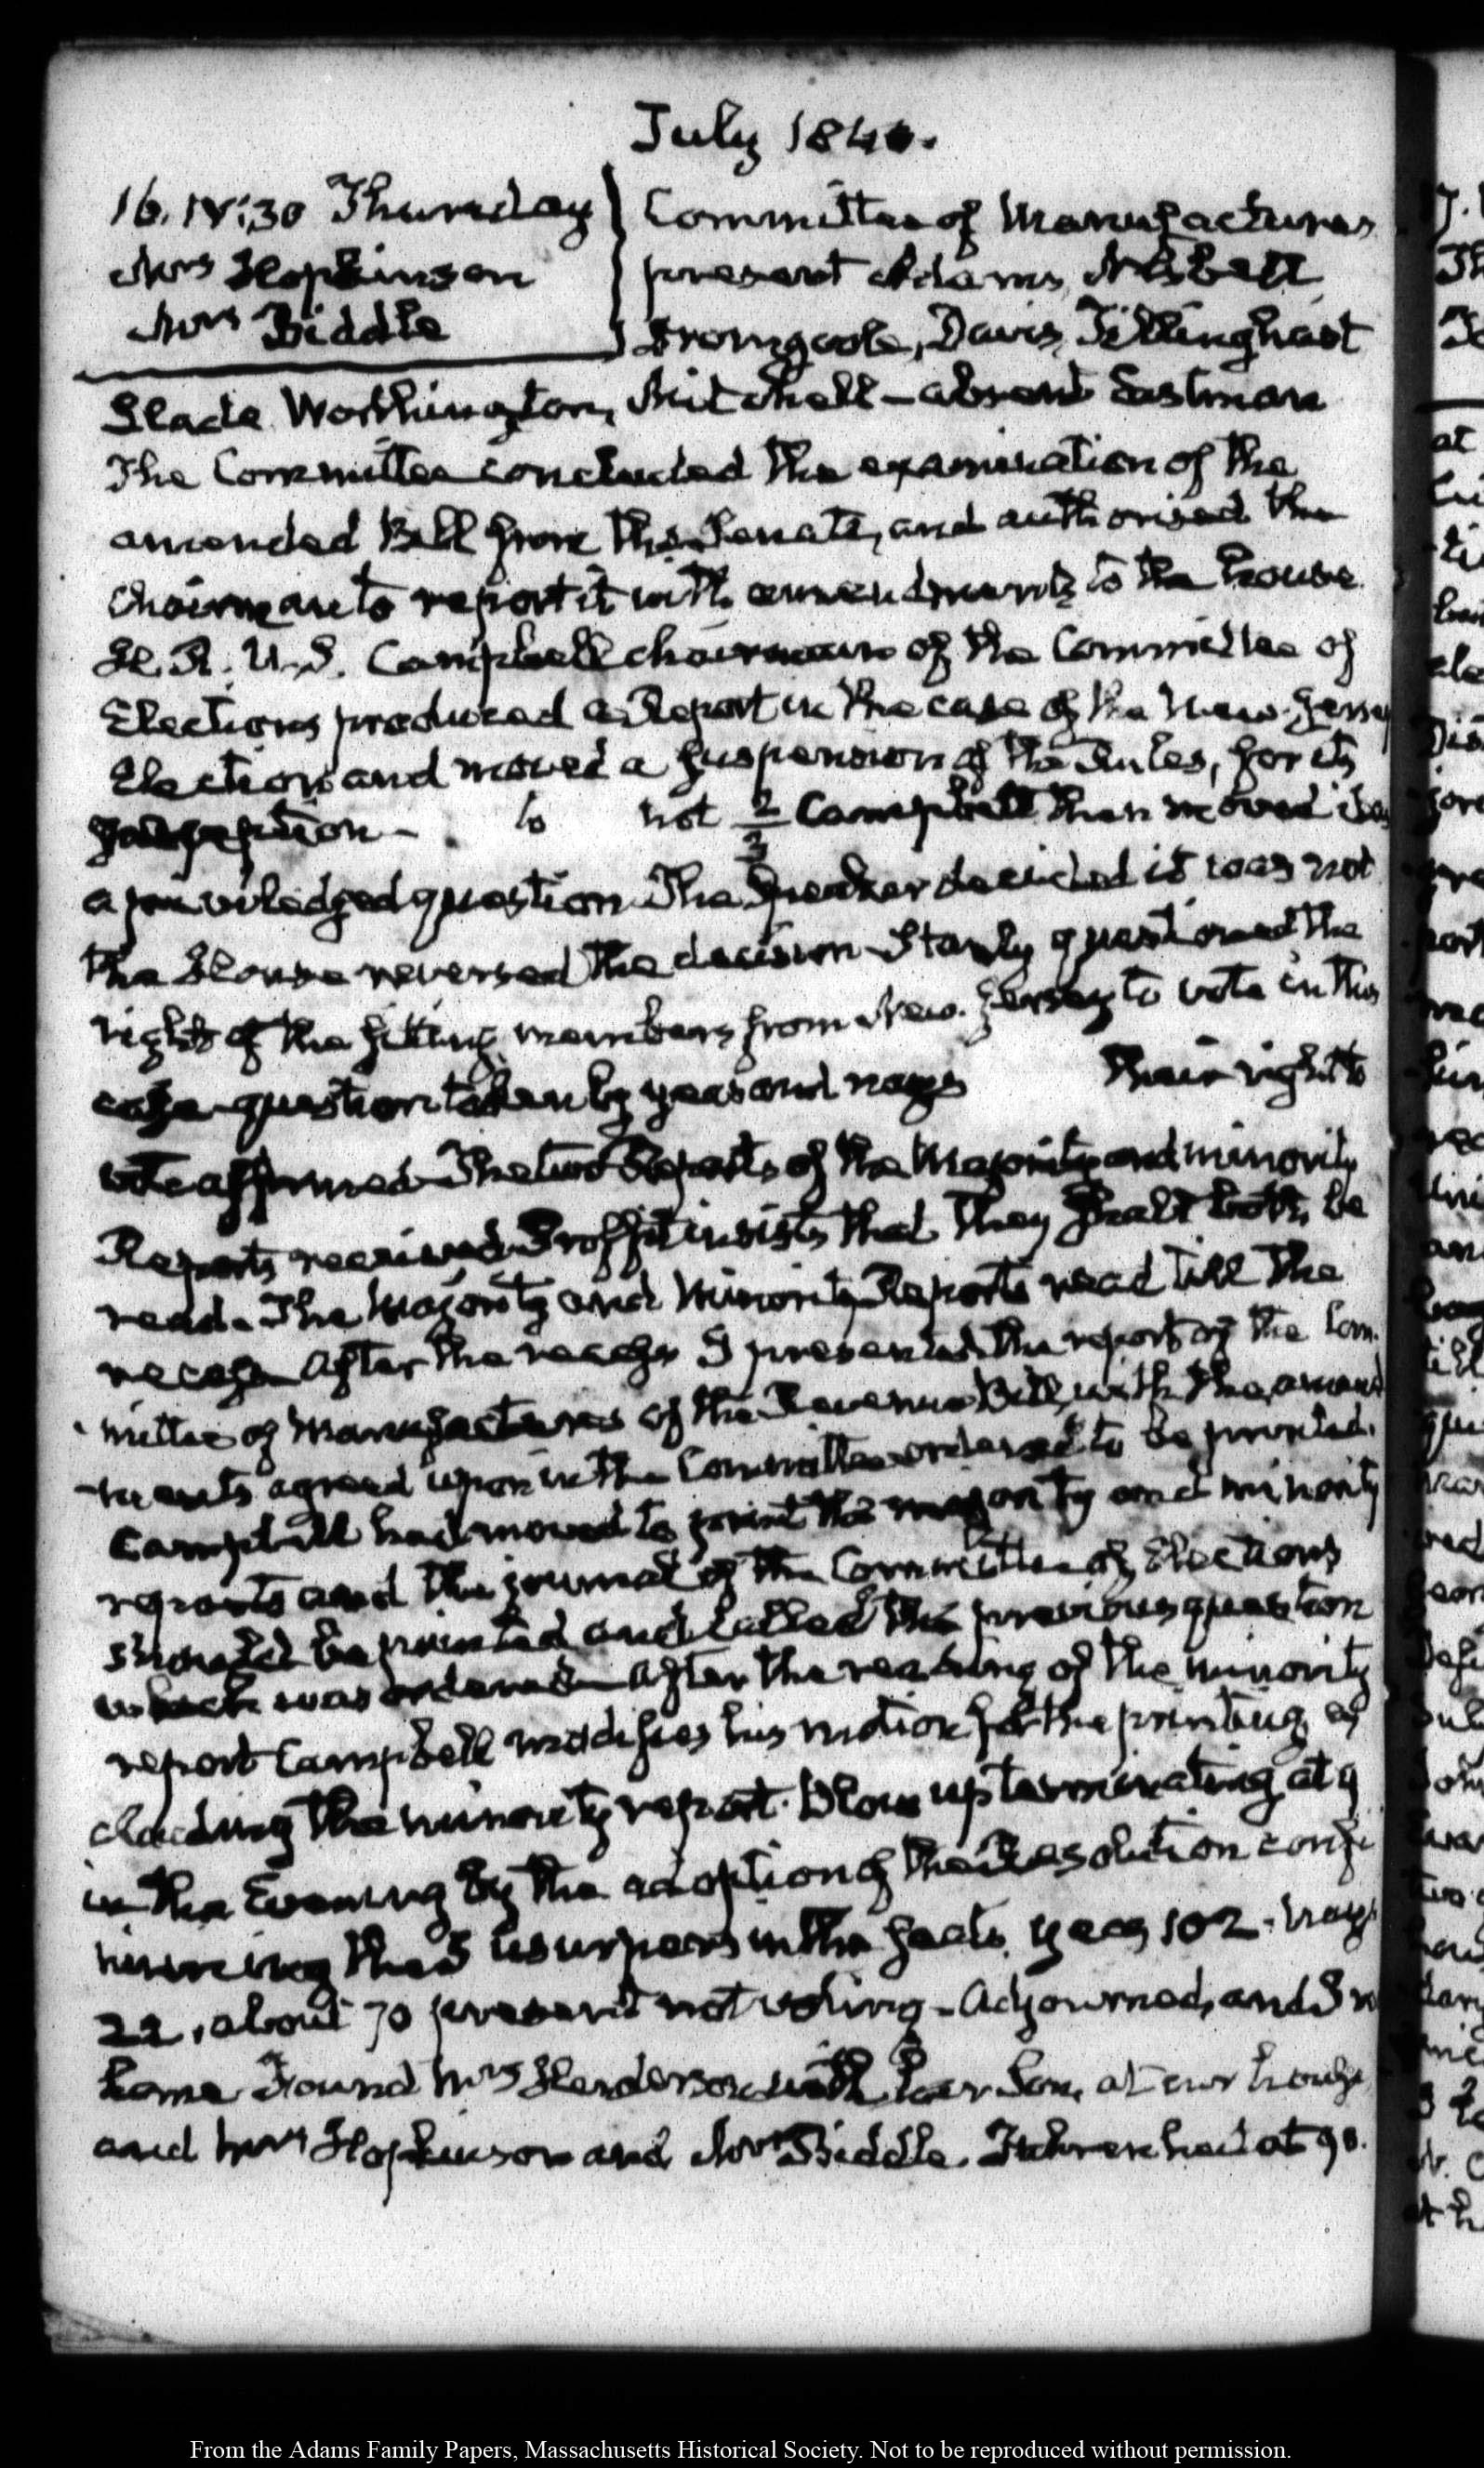 July 1840.
16. IV:30 Thursday
Mrs Hopkinson
Mrs Biddle
Committee of Manufactures
present Adams, Nisbet
Dromgoole, Davis, Tillinghast
Slade Worthington, Mitchell — absent Eastman
The Committee concluded the examination of the
amended Bill from the Senate, and authorised the
Chairman to report it with amendments to the house
H. R. U.S. Campbell chairman of the Committee of
Elections produced a Report in the case of the New-Jersey
Election and moved a suspension of the Rules, for its
to not 2/3 Campbell then moved it as
a priviledged question The Speaker decided it was not
the House reversed the decision Stanly questioned the
right of the sitting members from New-Jersey to vote in this
case question taken by yeas and nays Their right to
vote affirmed The two Reports of the Majority and minority
Reports received Proffit insists that they shall both be
read. The Majority and Minority Reports read till the
recess After the recess I presented the report of the Com-
mittee of Manufactures of the Revenue Bill, with the amend
-ments agreed upon in the Committee ordered to be printed.
Campbell had moved to print the majority and minority
reports and the journal of the Committee of Elections
should be printed and called the previous question
which was ordered — After the reading of the minority
report Campbell modifies his motion for the printing ex
cluding the minority report. Blow up terminating at 9
in the Evening by the adoption of the Resolution confi
the 5 usurpers in the seats. yeas 102. nays
22. about 70 present not voting — Adjourned, and I
home Found Mrs Henderson with her Son, at our house
and Mrs Hopkinson and Mrs Biddle. at 90.
From the Adams Family Papers, Massachusetts Historical Society. Not to be reproduced without permission.